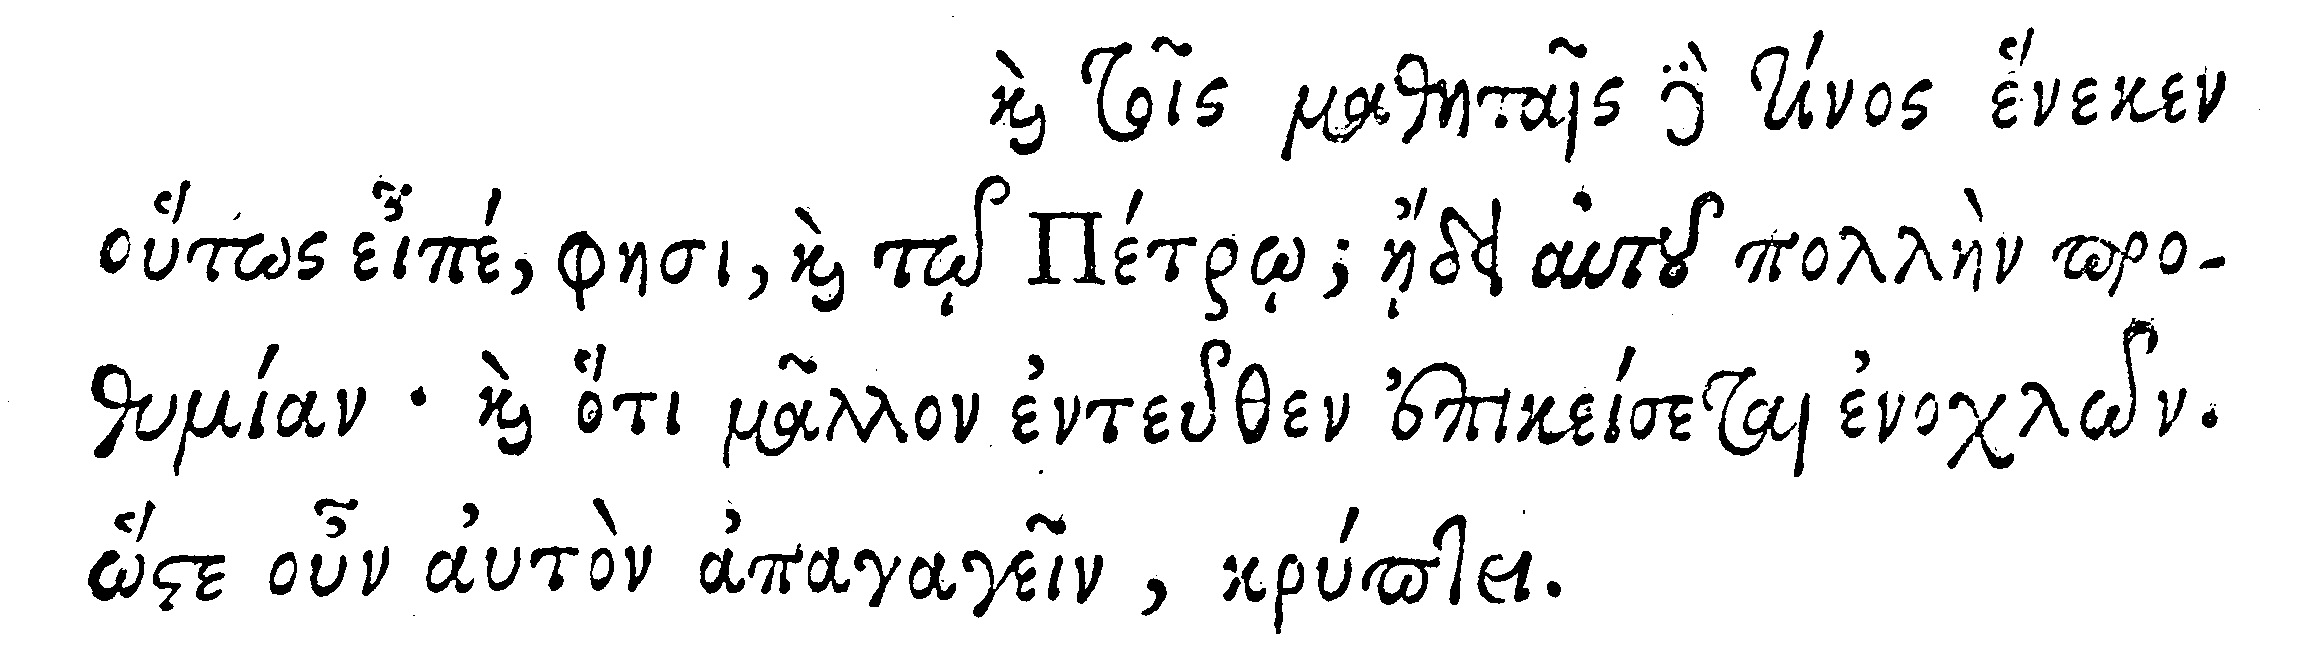 καὶ τοῖς μαθηταῖς καὶ τίνος ἕνεκεν
οὕτως εἶπέ, φησι, καὶ τῷ Πέτρῳ; ᾔδει αὐτοῦ πολλὴν προ-
θυμίαν · καὶ ὅτι μᾶλλον ἐντεῦθεν ἐπικείσεται ἐνοχλῶν.
ὥστε οὖν αὐτὸν ἀπαγαγεῖν, κρύπτει.